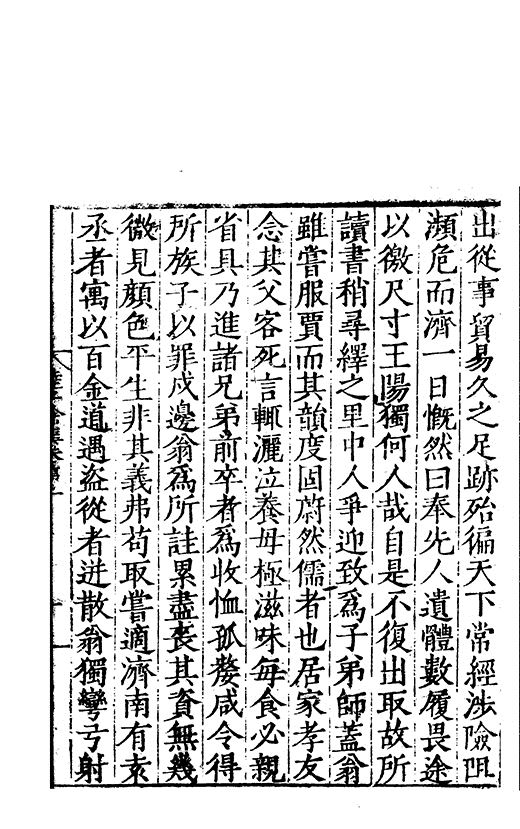 出從事貿易久之足跡殆徧天下常經涉險阻
瀕危而濟一日慨然曰奉先人遺體數履畏途
以徼尺寸王陽獨何人哉自是不復出取故所
讀書稍尋繹之里中人爭迎致爲子弟師蓋翁
雖嘗服賈而其韻度固蔚然儒者也居家孝友
念其父客死言輒灑泣養母極滋味每食必親
省具乃進諸兄弟前卒者爲收恤孤嫠咸令得
所族子以罪戍邊翁爲所註累盡喪其資無幾
微見顏色平生非其義弗苟取嘗適濟南有袁
丞者寓以百金道遇盜從者迸散翁獨彎弓射